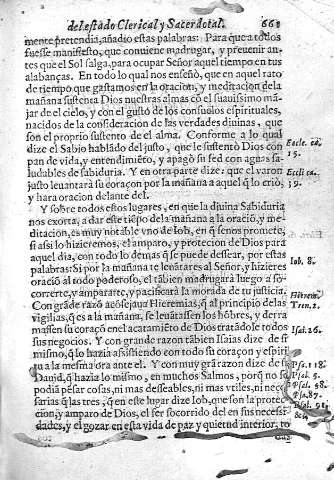 del estado Clerical, y Sacerdotal. 661
mente pretendia, añadio estas palabras: Para que a todos
fuesse manifiesto, que conuiene madrugar, y preuenir an-
tes que el Sol salga, para ocupar Señor aquel tiempo en tus
alabanças. En todo lo qual nos enseñò, que en aquel rato
de tiempo que gastamos en la oracion, y meditacion de la
mañana sustenta Dios nuestras almas cõ el suauissimo mã-
jar de el cielo, y con el gusto de los consuelos espirituales,
nacidos de la consideracion de las verdades diuinas, que
son el proprio sustento de el alma. Conforme a lo qual
dize el Sabio hablãdo del justo, que le sustentò Dios con
pan de vida, y entendimiẽto, y apagò su sed con aguas sa-
ludables de sabiduria. Y en otra parte dize: que el varon
justo leuantarà su coraçon por la mañana a aquel q̃ lo criò,
y hara oracion delante del.
Eccle. ca.
15.
Eccli ca.
39.
Y sobre todos estos lugares, en que la diuina Sabiduria
nos exorta, a dar este tiẽpo de la mañana a la oraciõ, y me-
ditacion, es muy notable vno de Iob, en q̃ senos promete,
si assi lo hizieremos, el amparo, y protecion de Dios para
aquel dia, con todo lo demas q̃ se puede dessear, por estas
palabras: Si por la mañana te leuãtares al Señor, y hizieres
oraciõ al todo poderoso, el tãbien madrugarà luego a so-
correrte, y ampararte, y pacificarà la morada de tu justicia.
Iob. 8.
Con grãde razõ aconseja Hieremias, q̃ al principio de las
vigilias, q̃ es a la mañana, se leuãtassen los hõbres, y derra
massen su coraçõ en el acatamiẽto de Dios tratãdole todos
sus negocios. Y con grande razon tãbien Isaias dize de si
mismo, q̃ lo hazia assi siendo con todo su coraçon y espiri-
tu a la mesma ora ante el. Y con muy grã razon dize de si
Dauid, q̃ hazia lo mismo, en muchos Salmos, porq̃ no se
podiã pensar cosas, ni mas desseables, ni mas vtiles, ni nec
sarias q̃ las tres, q̃ en este lugar dize Iob, que son la prote-
cion, y amparo de Dios, el ser socorrido del en sus necessi
dades, y el gozar en esta vida de paz y quietud interior, to
Hierem.
Tren. 2.
Isai. 26.
Psa. 118.
Psal. 5.
Psal. 58.
Psa. 87.
Psal. 91.